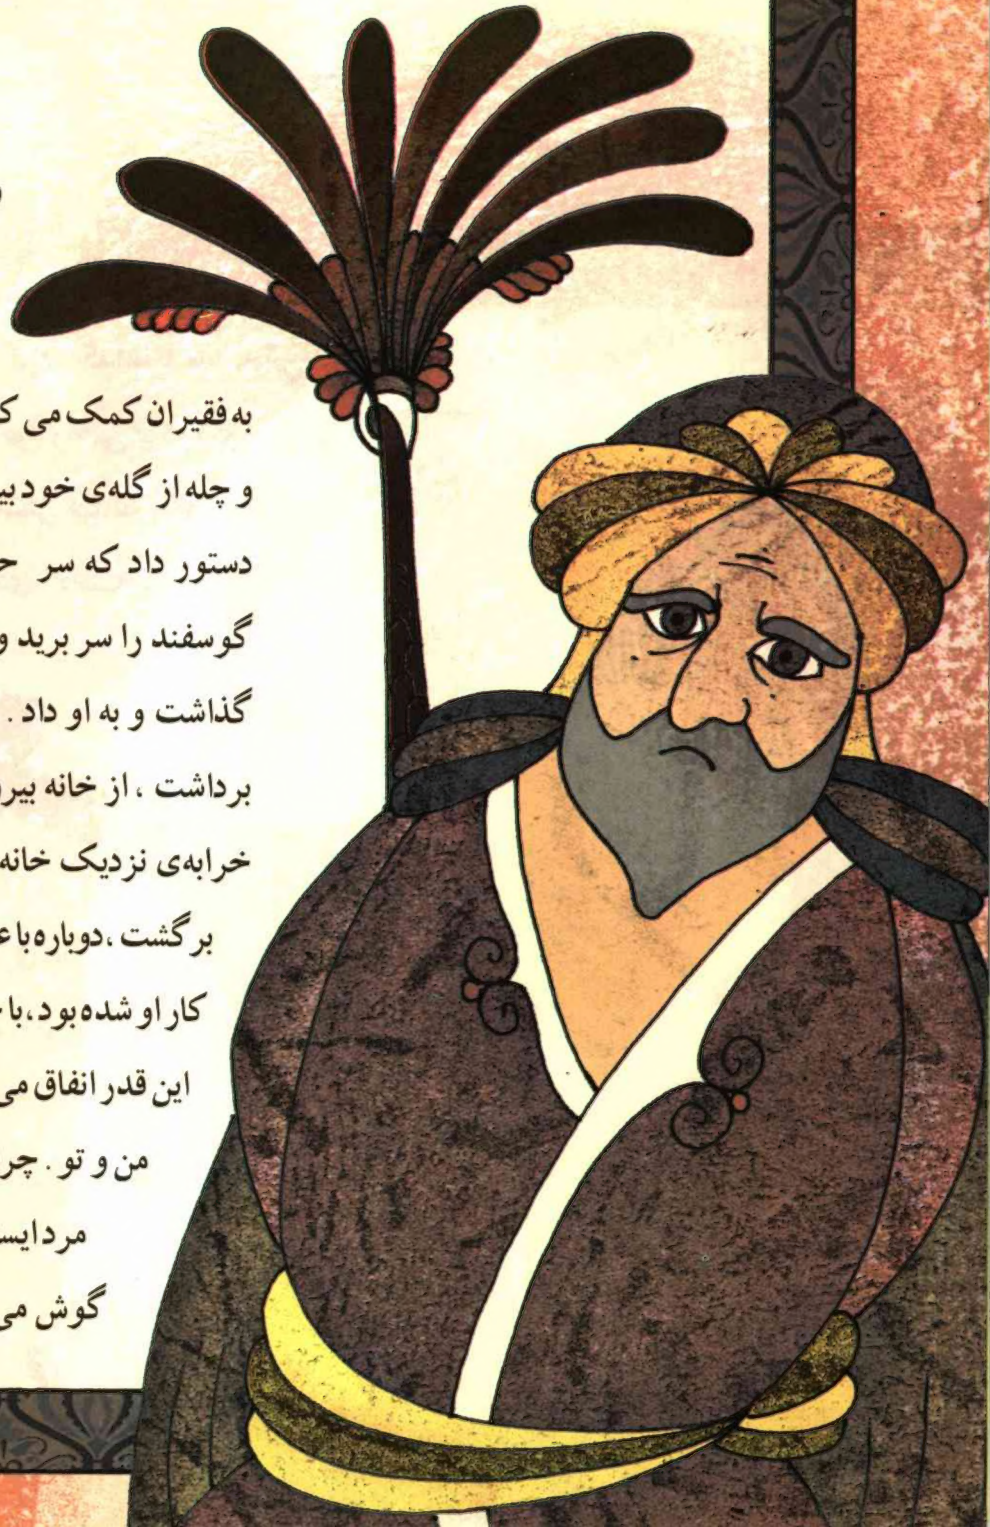 به فقیران کمک می
و چله از گله‌ی خود
دستور داد که سر
گوسفند را سر برید و
گذاشت و به او داد .
برداشت ، از خانه
خرابه‌ی نزدیک خانه
برگشت ،دوباره
کار او شده بود،
این قدر انفاق می
من و تو .
مرد
گوش می